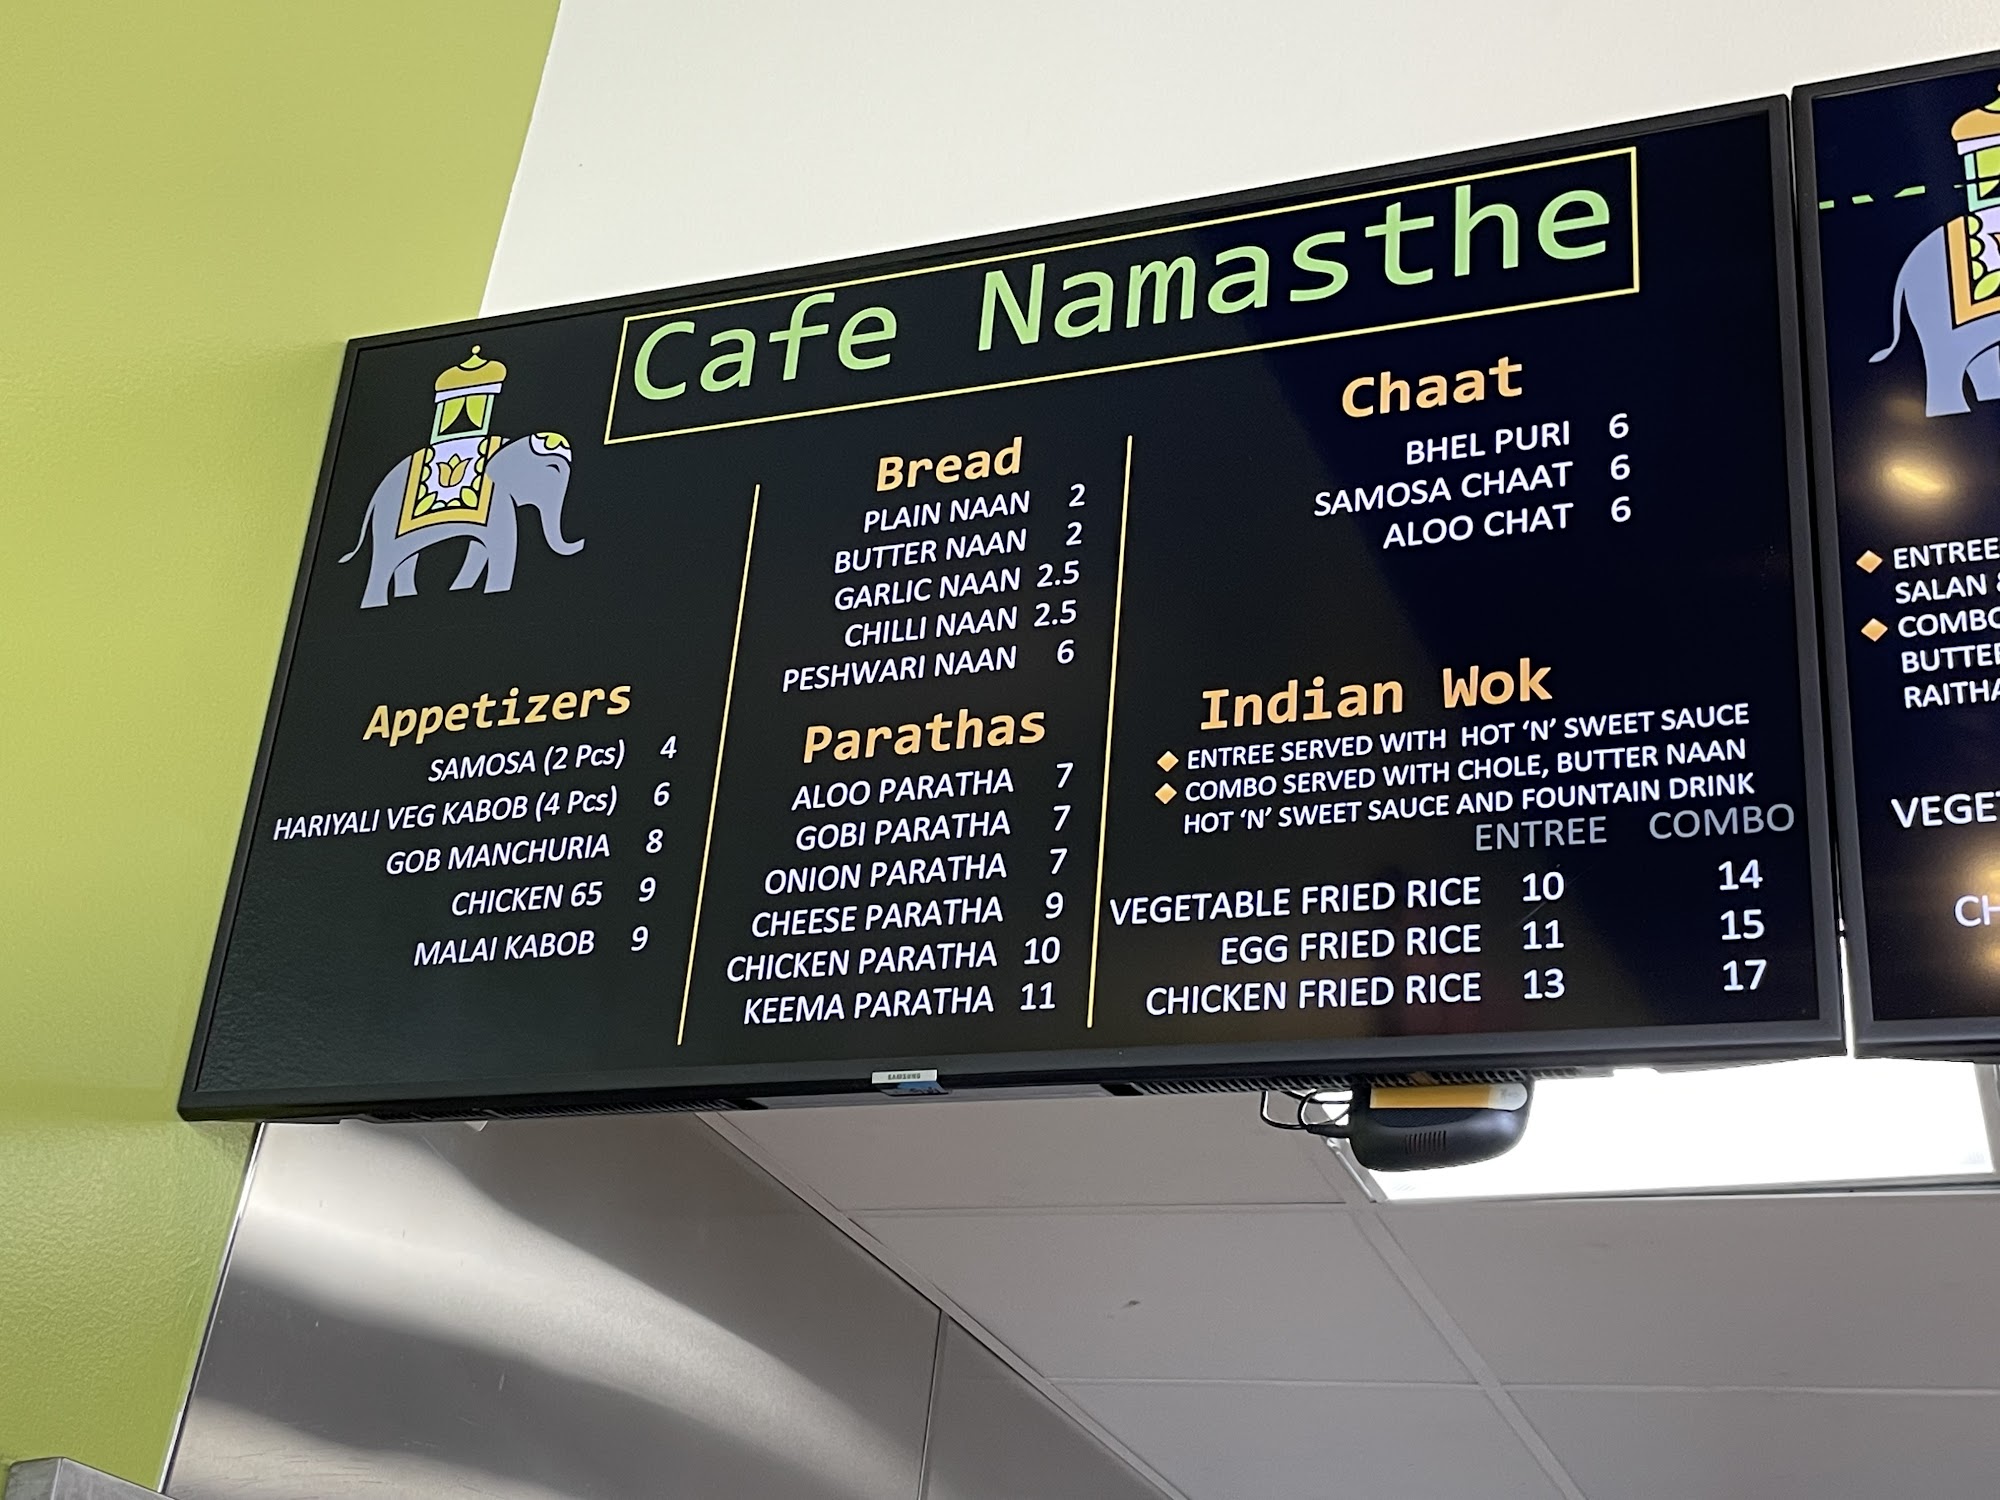 Cafe Namasthe
Appetizers
SAMOSA (2 Pcs) 4
HARIYALI VEG KABOB (4 Pcs) 6
GOB MANCHURIA 8
CHICKEN 65 9
MALAI KABOB 9
Bread
PLAIN NAAN 2
BUTTER NAAN 2
GARLIC NAAN 2.5
CHILLI NAAN 2.5
PESHWARI NAAN 6
Parathas
ALOO PARATHA 7
GOBI PARATHA 7
ONION PARATHA 7
CHEESE PARATHA 9
CHICKEN PARATHA 10
KEEMA PARATHA 11
Chaat
BHEL PURI 6
SAMOSA CHAAT 6
ALOO CHAT 6
Indian Wok
ENTREE SERVED WITH HOT ‘N’ SWEET SAUCE
COMBO SERVED WITH CHOLE, BUTTER NAAN
HOT ‘N’ SWEET SAUCE AND FOUNTAIN DRINK
ENTREE COMBO
VEGETABLE FRIED RICE 10 14
EGG FRIED RICE 11 15
CHICKEN FRIED RICE 13 17
SAMSUNG
ENTREE
SALAN
COMBO
BUTTE
RAITHA
VEGE
CH